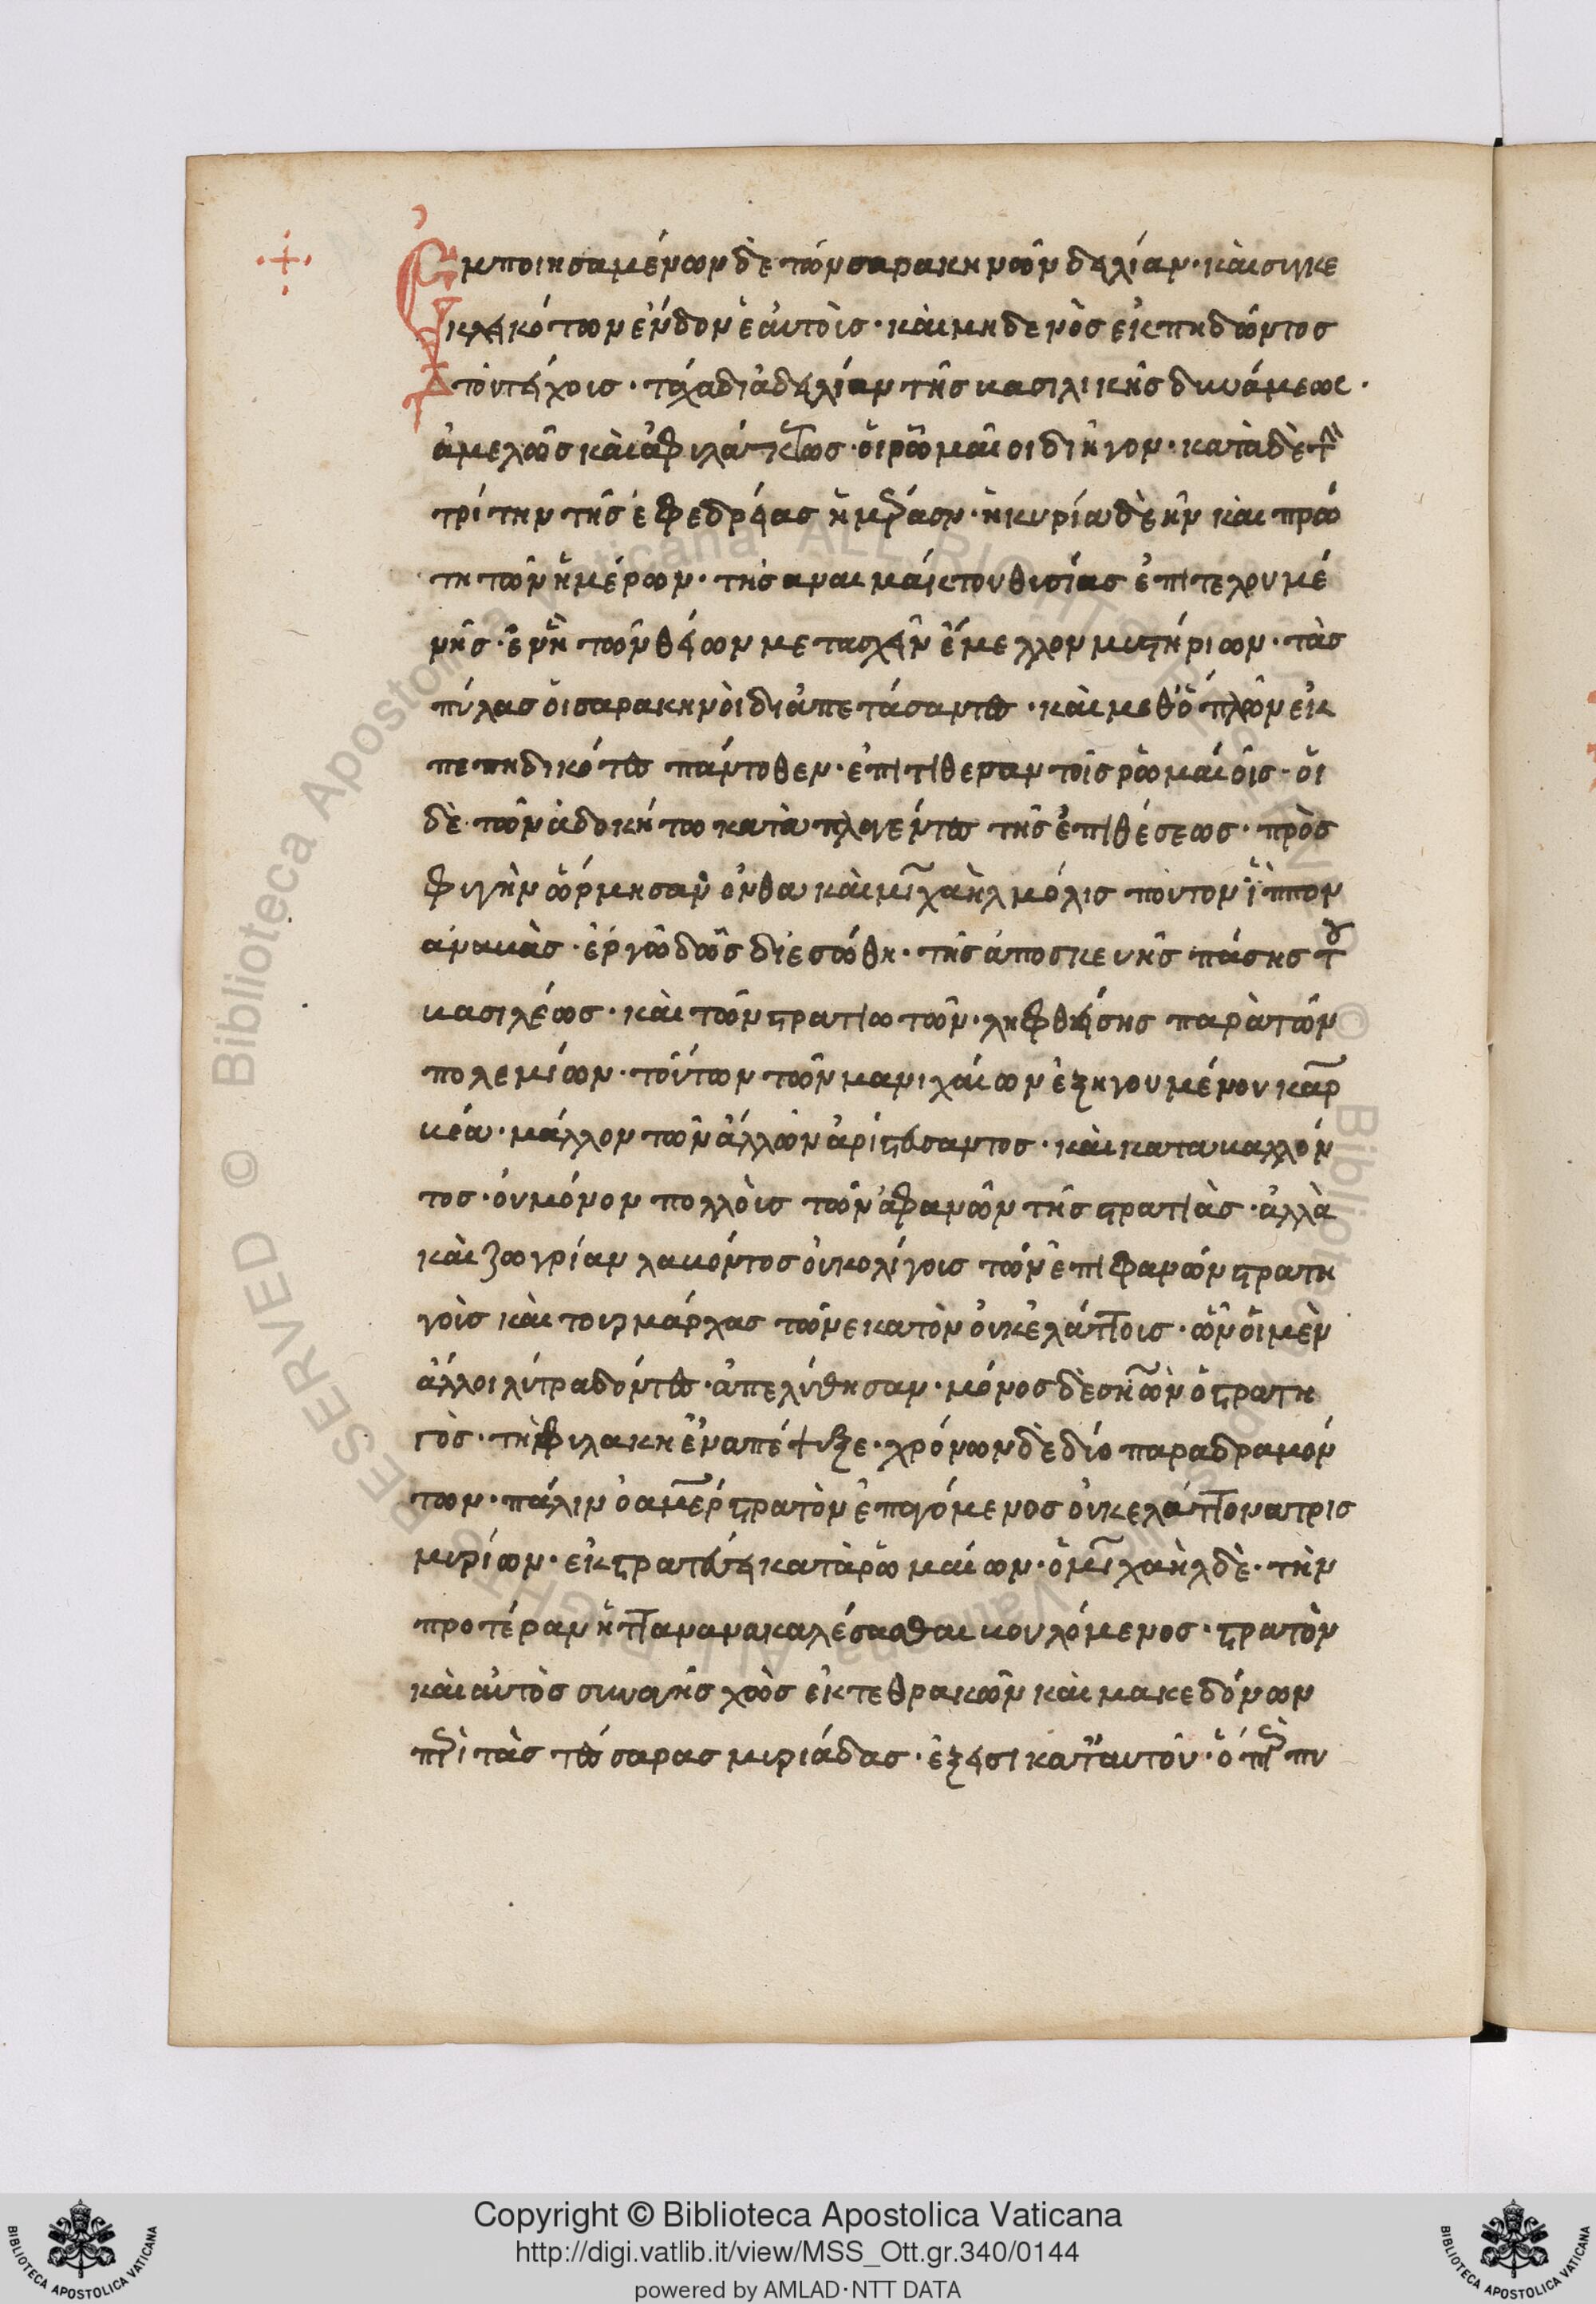 Ἐμποιησαμένων δὲ τῶν σαρακηνῶν δειλίαν· καὶ συγκε
κλεικότων ἔνδον ἑαυτοῖς· καὶ μηδενὸς ἐκπηδῶντος
τοῦ τείχοις· τάχα διὰ δειλίαν τῆς βασιλικῆς δυνάμεως·
ἀμελῶς καὶ ἀφιλάκτως· οἱ ῥωμαῖοι διῆγον· κατὰ δὲ τὴν
τρίτην τῆς ἐφεδρείας ἡμέραν· ἡ κυρία δὲ ἦν καὶ πρώ
τη τῶν ἡμέρων· τῆς αναιμάκτου θυσίας ἐπιτελουμέ
νης· ἐν ἧ τῶν θείων μετασχεῖν ἔμελλον μυστηρίων· τὰς
πύλας οἱ σαρακηνοὶ διαπετάσαντες· καὶ μεθ' ὅπλων ἐκ
πεπηδικότες πάντοθεν· ἐπιτίθενται τοῖς ῥωμαίοις· οἱ
δὲ τῶ ἀδοκήτω καταπλαγέντες τῆς ἐπιθέσεως· πρὸς
φιγὴν ὥρμησαν ἔνθα καὶ μιχαὴλ μόλις που τὸν ἵππον
ἀναβὰς· ἐργωδῶς διεσώθη· τῆς ἀποσκευῆς πάσης τοῦ
βασιλέως· καὶ τῶν στρατιωτῶν· ληφθείσης παρὰ τῶν
πολεμίων· τούτων τῶν μανιχαίων ἐξηγουμένου καρ
βέα· μάλλον τῶν ἄλλων ἀριστεύσαντος· καὶ καταβαλλόν
τος· οὐ μόνον πολλοὶς τῶν ἀφανῶν τῆς στρατιὰς· ἀλλὰ
καὶ ζωγρίαν λαβόντος οὐκ ολίγοις τῶν ἐπιφανῶν στρατη
γοὶς καὶ τουρμάρχας τῶν εκατὸν οὐκ ἐλάττοις· ὧν οἱ μὲν
ἄλλοι λύτρα δόντες· ἀπελύθησαν· μόνος δὲ σηὼν ὁ στρατη
γὸς· τῆ φιλακῆ ἐναπέψυξε· χρόνων δὲ δύο παραδραμόν
των· πάλιν ὁ αμερ στρατὸν ἐπαγόμενος οὐκ ελάττονα τρις
μυρίων· ἐκστρατεύει κατὰ ῥωμαίων· ὁ μιχαὴλ δὲ· τὴν
προτέραν ἧτταν ανακαλέσασθαι βουλόμενος· στρατὸν
καὶ αὐτὸς συναγηοχὼς ἐκ τε θρακῶν καὶ μακεδόνων
περὶ τὰς τέσσαρας μυριάδας· ἔξεισι κατ' αυτοῦ· ὅπερ πυ
Copyright © Biblioteca Apostolica Vaticana
http://digi.vatlib.it/view/MSS_Ott.gr.340/0144
powered by AMLAD·NTT DATA